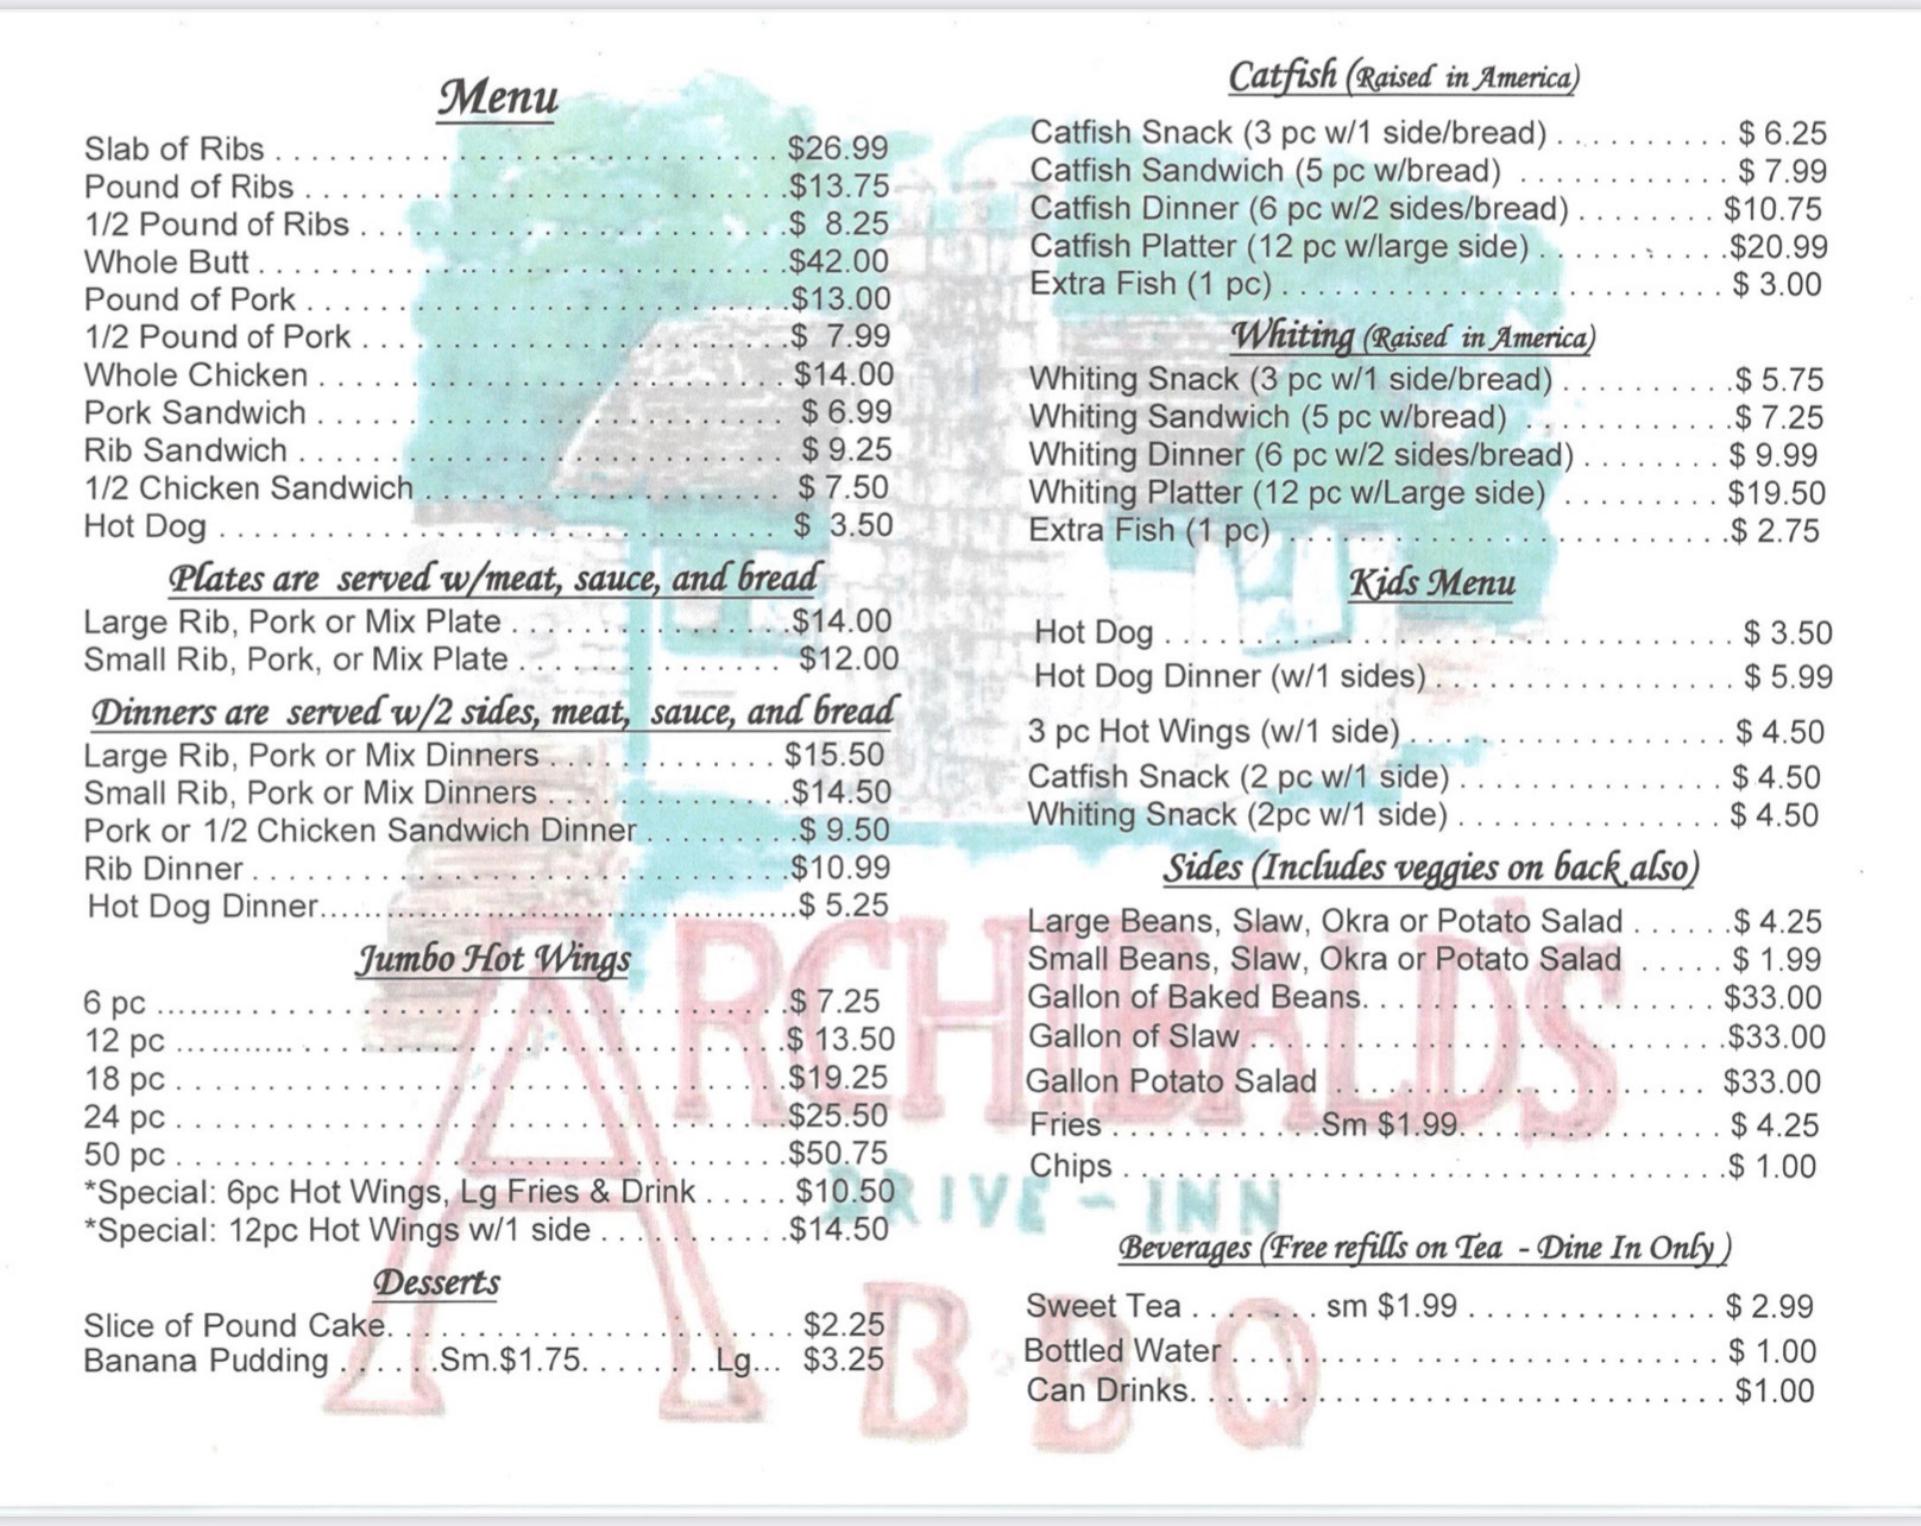 Menu
Slab of Ribs . . . . . . . . . . . . . . . . . . . . . . . . . . . . $26.99
Pound of Ribs . . . . . . . . . . . . . . . . . . . . . . . . . . .$13.75
1/2 Pound of Ribs . . . . . . . . . . . . . . . . . . . . . . . .$ 8.25
Whole Butt . . . . . . . . . . . . . . . . . . . . . . . . . . . . .$42.00
Pound of Pork . . . . . . . . . . . . . . . . . . . . . . . . . . .$13.00
1/2 Pound of Pork . . . . . . . . . . . . . . . . . . . . . . . .$ 7.99
Whole Chicken . . . . . . . . . . . . . . . . . . . . . . . . . . $14.00
Pork Sandwich . . . . . . . . . . . . . . . . . . . . . . . . . . $ 6.99
Rib Sandwich . . . . . . . . . . . . . . . . . . . . . . . . . . . $ 9.25
1/2 Chicken Sandwich . . . . . . . . . . . . . . . . . . . . $ 7.50
Hot Dog . . . . . . . . . . . . . . . . . . . . . . . . . . . . . . . $ 3.50
Plates are served w/meat, sauce, and bread
Large Rib, Pork or Mix Plate . . . . . . . . . . . . . . . .$14.00
Small Rib, Pork, or Mix Plate . . . . . . . . . . . . . . . $12.00
Dinners are served w/2 sides, meat, sauce, and bread
Large Rib, Pork or Mix Dinners . . . . . . . . . . . . . $15.50
Small Rib, Pork or Mix Dinners . . . . . . . . . . . . . .$14.50
Pork or 1/2 Chicken Sandwich Dinner . . . . . . . . .$ 9.50
Rib Dinner . . . . . . . . . . . . . . . . . . . . . . . . . . . . . .$10.99
Hot Dog Dinner..................................................$ 5.25
Jumbo Hot Wings
6 pc ........ . . . . . . . . . . . . . . . . . . . . . . . . . . . . .$ 7.25
12 pc ........... . . . . . . . . . . . . . . . . . . . . . . . . . .$ 13.50
18 pc . . . . . . . . . . . . . . . . . . . . . . . . . . . . . . . . . .$19.25
24 pc . . . . . . . . . . . . . . . . . . . . . . . . . . . . . . . . . .$25.50
50 pc . . . . . . . . . . . . . . . . . . . . . . . . . . . . . . . . . .$50.75
*Special: 6pc Hot Wings, Lg Fries & Drink . . . . . $10.50
*Special: 12pc Hot Wings w/1 side . . . . . . . . . . .$14.50
Desserts
Slice of Pound Cake. . . . . . . . . . . . . . . . . . . . . . . $2.25
Banana Pudding . . . . . .Sm.$1.75. . . . . . . .Lg... $3.25
Catfish (Raised in America)
Catfish Snack (3 pc w/1 side/bread) . . . . . . . . . . $ 6.25
Catfish Sandwich (5 pc w/bread) . . . . . . . . . . . . $ 7.99
Catfish Dinner (6 pc w/2 sides/bread) . . . . . . . . $10.75
Catfish Platter (12 pc w/large side) . . . . . . . . . . .$20.99
Extra Fish (1 pc) . . . . . . . . . . . . . . . . . . . . . . . . . $ 3.00
Whiting (Raised in America)
Whiting Snack (3 pc w/1 side/bread) . . . . . . . . . .$ 5.75
Whiting Sandwich (5 pc w/bread) . . . . . . . . . . . .$ 7.25
Whiting Dinner (6 pc w/2 sides/bread) . . . . . . . . $ 9.99
Whiting Platter (12 pc w/Large side) . . . . . . . . . $19.50
Extra Fish (1 pc) . . . . . . . . . . . . . . . . . . . . . . . . .$ 2.75
Kids Menu
Hot Dog . . . . . . . . . . . . . . . . . . . . . . . . . . . . . . . . $ 3.50
Hot Dog Dinner (w/1 sides) . . . . . . . . . . . . . . . . . $ 5.99
3 pc Hot Wings (w/1 side) . . . . . . . . . . . . . . . . . . $ 4.50
Catfish Snack (2 pc w/1 side) . . . . . . . . . . . . . . . $ 4.50
Whiting Snack (2pc w/1 side) . . . . . . . . . . . . . . . $ 4.50
Sides (Includes veggies on back also)
Large Beans, Slaw, Okra or Potato Salad . . . . . .$ 4.25
Small Beans, Slaw, Okra or Potato Salad . . . . . $ 1.99
Gallon of Baked Beans. . . . . . . . . . . . . . . . . . . . $33.00
Gallon of Slaw . . . . . . . . . . . . . . . . . . . . . . . . . . .$33.00
Gallon Potato Salad . . . . . . . . . . . . . . . . . . . . . . $33.00
Fries . . . . . . . . . . . .Sm $1.99. . . . . . . . . . . . . . . $ 4.25
Chips . . . . . . . . . . . . . . . . . . . . . . . . . . . . . . . . . .$ 1.00
Beverages (Free refills on Tea - Dine In Only )
Sweet Tea . . . . . . . sm $1.99 . . . . . . . . . . . . . . $ 2.99
Bottled Water . . . . . . . . . . . . . . . . . . . . . . . . . . . $ 1.00
Can Drinks. . . . . . . . . . . . . . . . . . . . . . . . . . . . . . $1.00
ARCHIBALD'S
DRIVE - INN
B·B·Q